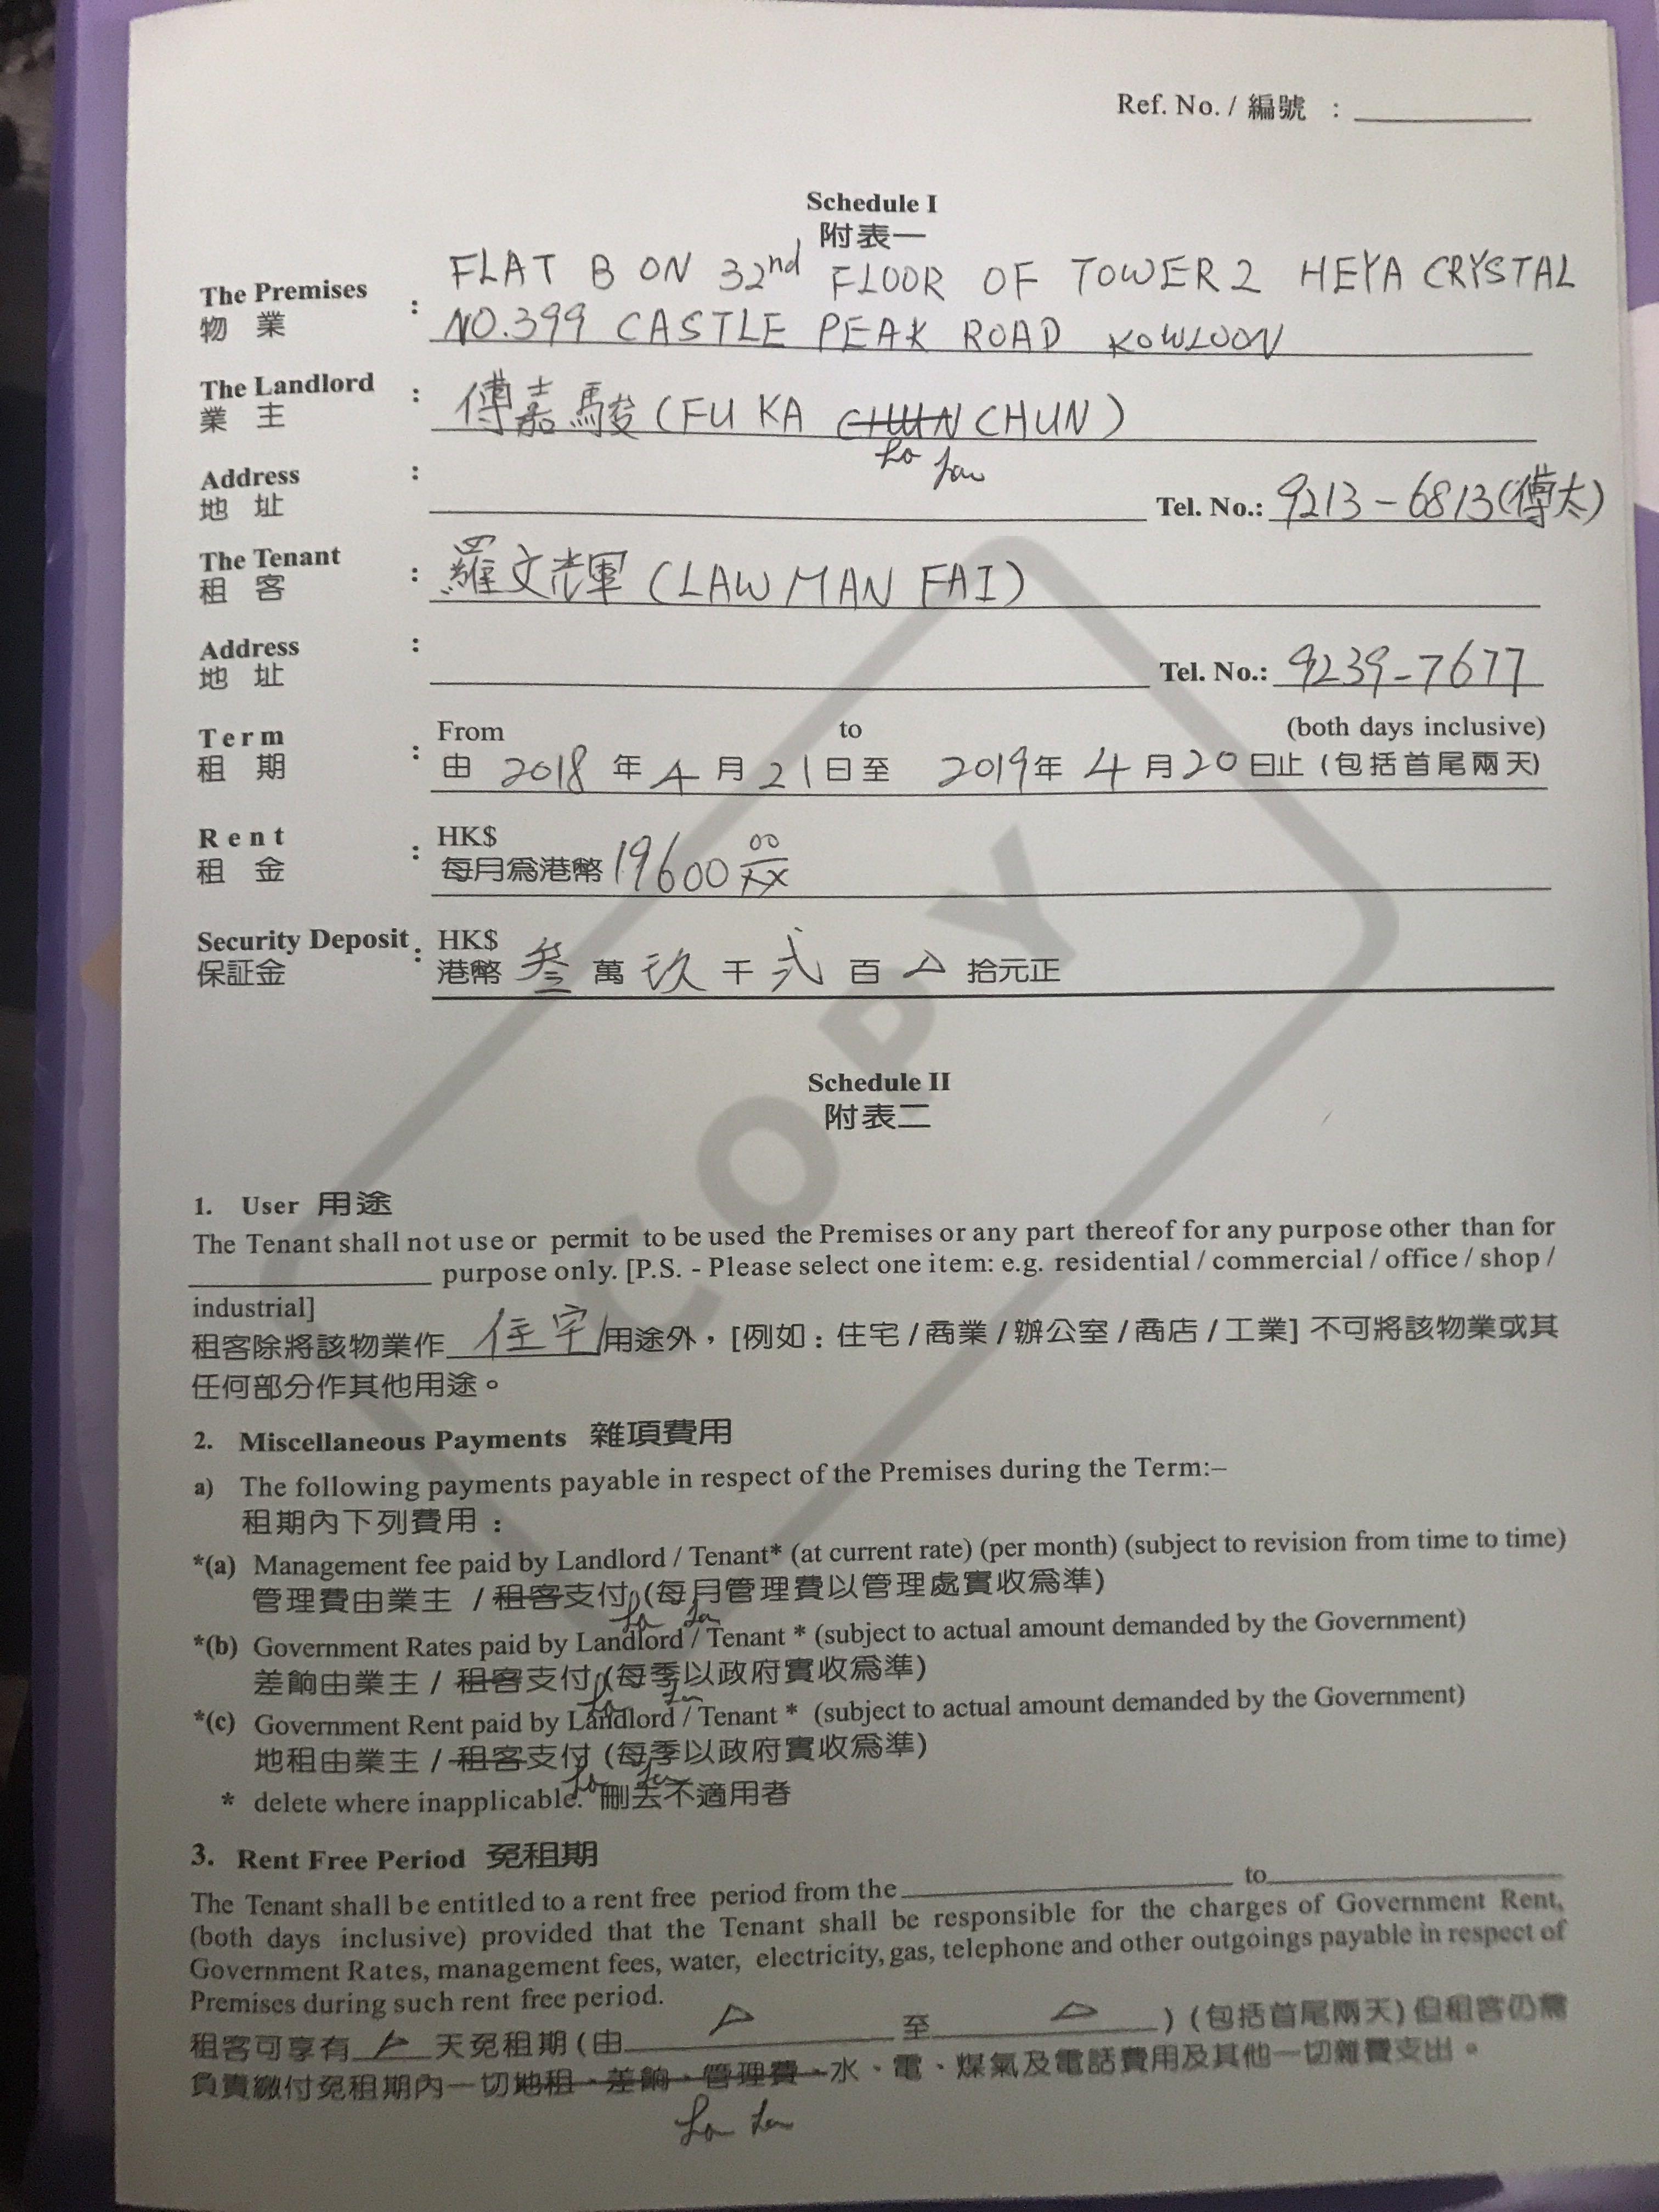 Ref. No. / 編號 :
Schedule I
附表一
The Premises
物 業
:
FLAT B ON 32nd FLOOR OF TOWER 2 HEYA CRYSTAL
NO.399 CASTLE PEAK ROAD KOWLOON
The Landlord
業 主
:
傅嘉駿 (FU KA CHUN CHUN)
Address
地 址
:
Tel. No.: 9213-6813(傅太)
The Tenant
租 客
:
羅文輝 (LAW MAN FAI)
Address
地 址
:
Tel. No.: 9239-7677
Term
租 期
:
From to (both days inclusive)
由 2018 年 4 月 21 日至 2019年 4 月 20 日止 (包括首尾兩天)
Rent
租 金
:
HK$
每月爲港幣 19600 00/XX
Security Deposit
保証金
:
HK$
港幣 叁 萬 玖 千 弍 百 拾元正
COPY
Schedule II
附表二
1. User 用途
The Tenant shall not use or permit to be used the Premises or any part thereof for any purpose other than for
purpose only. [P.S. - Please select one item: e.g. residential / commercial / office / shop /
industrial]
租客除將該物業作 住宅 用途外，[例如 : 住宅 / 商業 / 辦公室 / 商店 / 工業] 不可將該物業或其
任何部分作其他用途。
2. Miscellaneous Payments 雜項費用
a) The following payments payable in respect of the Premises during the Term:–
租期內下列費用 :
*(a) Management fee paid by Landlord / Tenant* (at current rate) (per month) (subject to revision from time to time)
管理費由業主 / 租客支付 (每月管理費以管理處實收爲準)
*(b) Government Rates paid by Landlord / Tenant * (subject to actual amount demanded by the Government)
差餉由業主 / 租客支付 (每季以政府實收爲準)
*(c) Government Rent paid by Landlord / Tenant * (subject to actual amount demanded by the Government)
地租由業主 / 租客支付 (每季以政府實收爲準)
* delete where inapplicable. 刪去不適用者
3. Rent Free Period 免租期
The Tenant shall be entitled to a rent free period from the to
(both days inclusive) provided that the Tenant shall be responsible for the charges of Government Rent,
Government Rates, management fees, water, electricity, gas, telephone and other outgoings payable in respect of
Premises during such rent free period.
租客可享有 天免租期 (由 至 ) (包括首尾兩天) 但租客仍需
負責繳付免租期內一切地租、差餉、管理費、水、電、煤氣及電話費用及其他一切雜費支出。